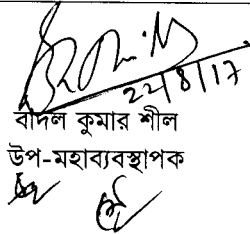 22/8/17
বাদল কুমার শীল
উপ-মহাব্যবস্থাপক